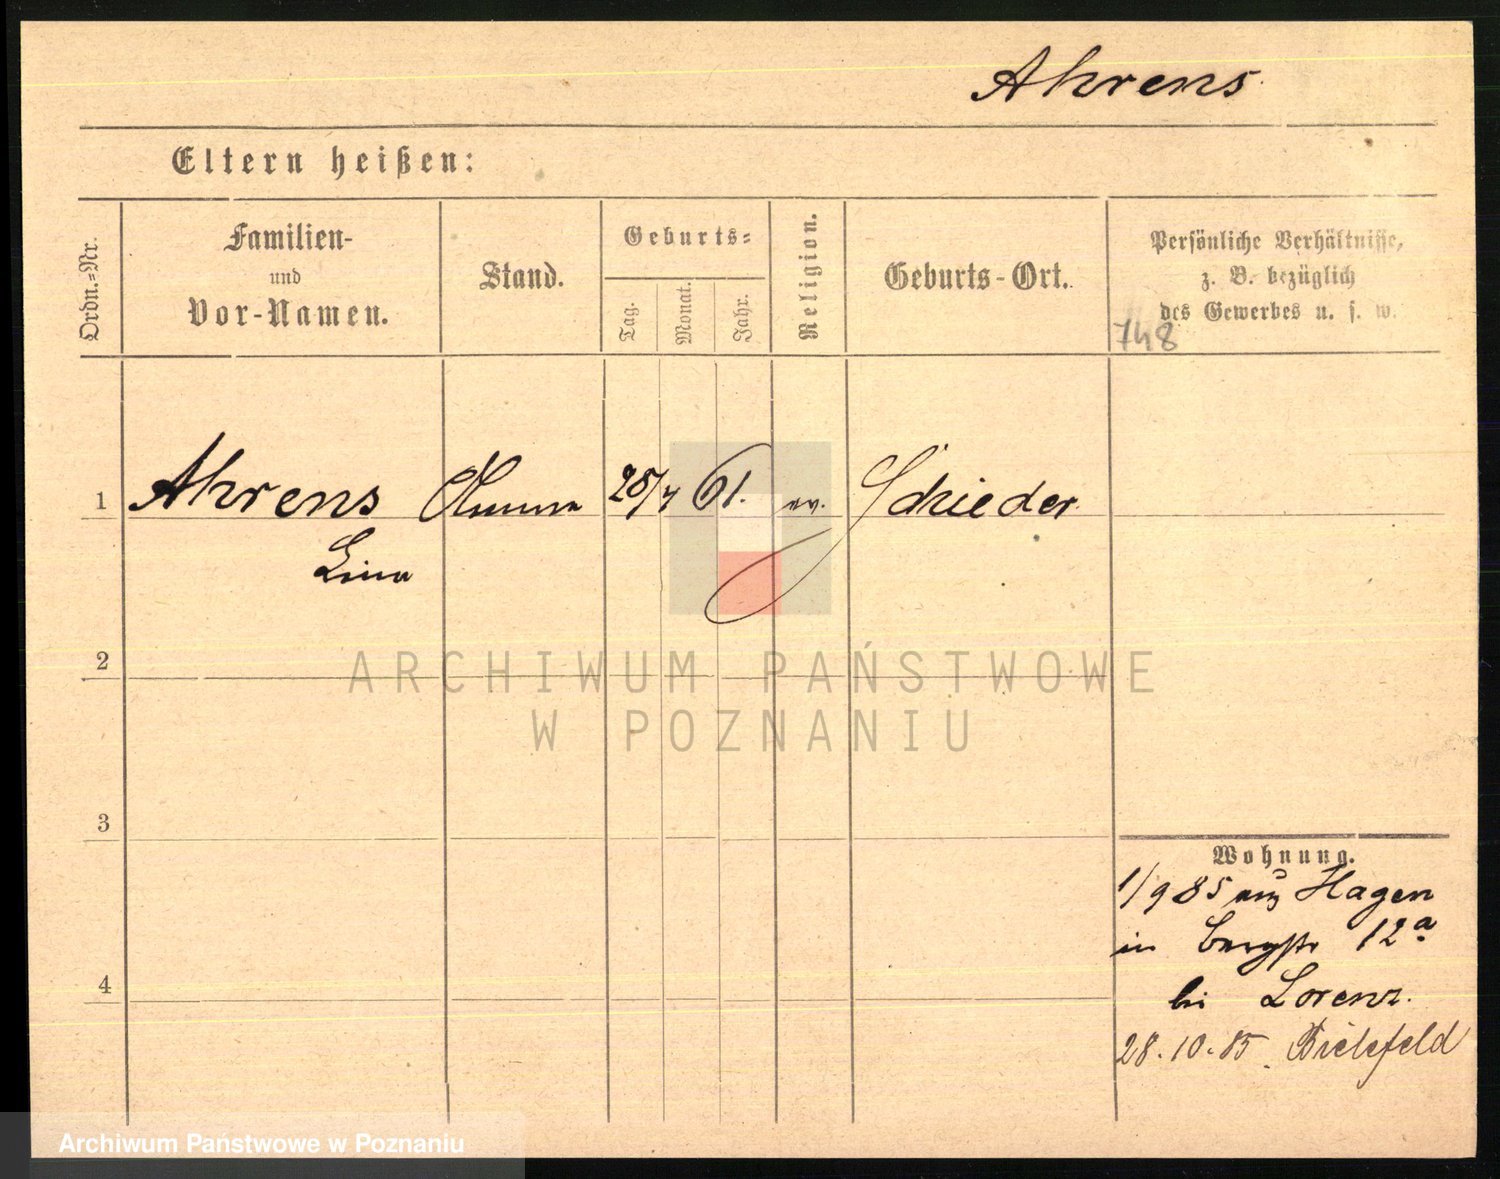 Ahrens
Eltern heißen:
Ordn.=Nr.
Familien-
und
Vor-Namen.
Stand.
Geburts=
Tag.
Monat.
Jahr.
Religion.
Geburts-Ort.
Persönliche Verhältnisse,
z. B. bezüglich
des Gewerbes u. s. w.
748
1 Ahrens 61. ev. Schieder
Lina
2
3
4
Wohnung.
1/9 85 aus Hagen
in Bergstr 12a
bei Lorenz.
28.10.85. Bielefeld
ARCHIWUM PAŃSTWOWE
W POZNANIU
Archiwum Państwowe w Poznaniu